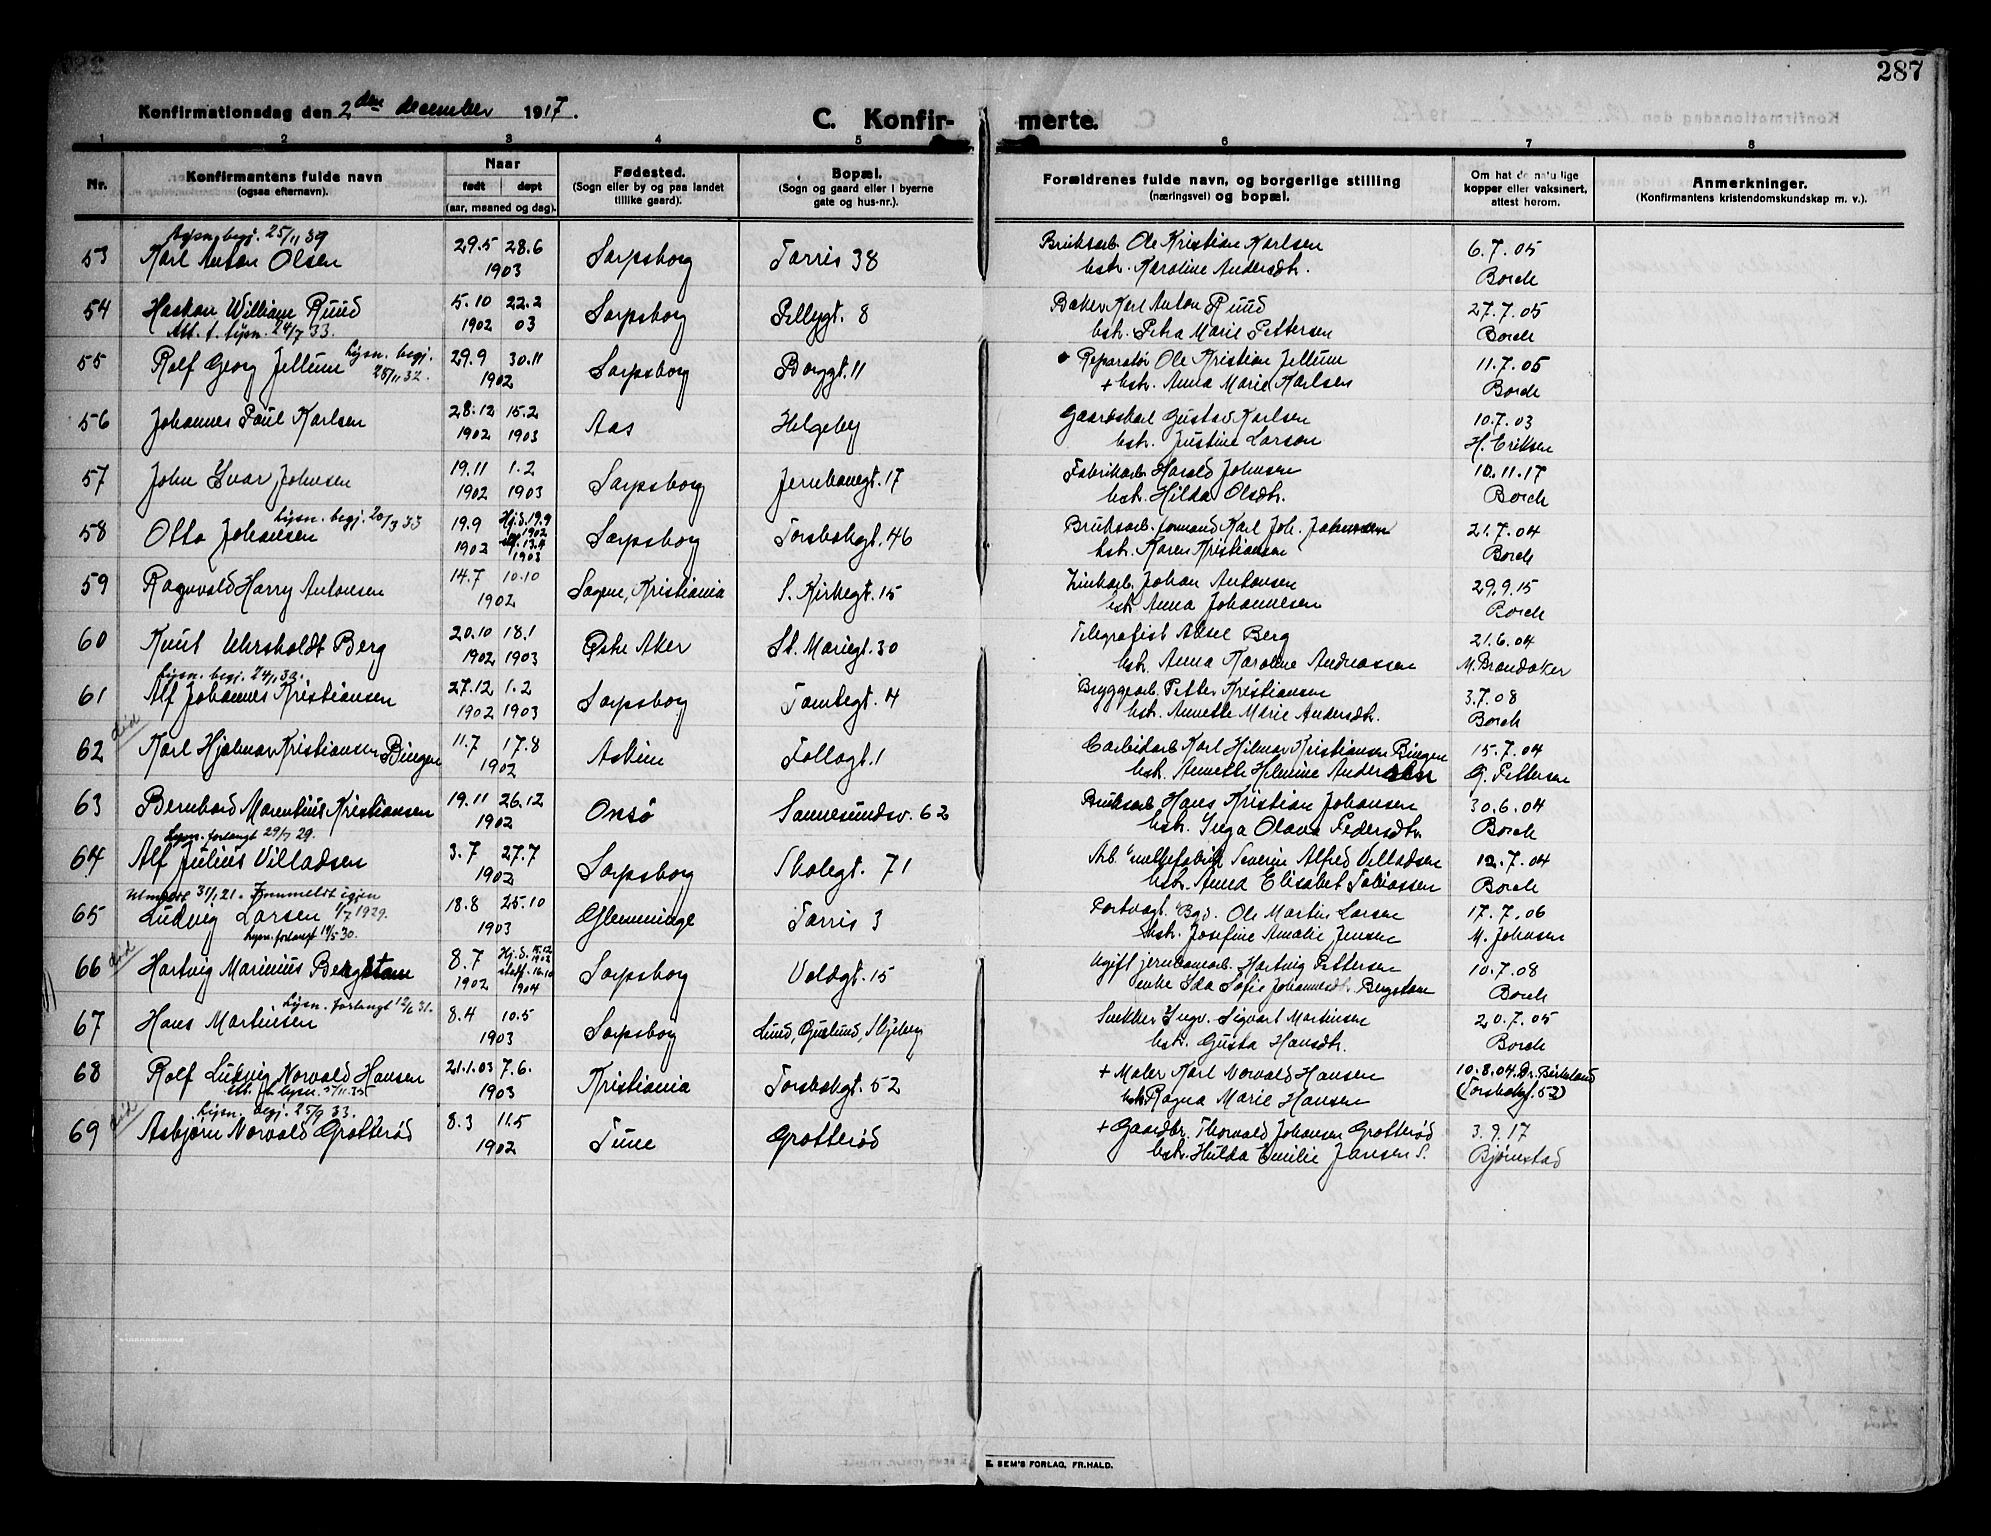 287
Konfirmationsdag den 2den december 1917.
C. Konfir-
merte.
1 2 3 4 5 6 7 8
Nr.
Konfirmantens fulde navn
(ogsaa efternavn).
Naar
født døpt
(aar, maaned og dag).
Fødested.
(Sogn eller by og paa landet
tillike gaard).
Bopæl.
(Sogn og gaard eller i byerne
gate og hus-nr.).
Forældrenes fulde navn, og borgerlige stilling
(næringsvei) og bopæl.
Om hat de naturlige
kopper eller vaksinert,
attest herom.
Anmerkninger.
(Konfirmantens kristendomskundskap m. v.).
Lysn. begj. 25/11 39
53 Karl Anton Olsen 29.5 28.6 Sarpsborg Tarris 38 Bruksarb. Ole Kristian Karlsen 6.7.05
1903 hstr. Karoline Andersdtr. Borch
54 Haakon William Ruud 5.10 22.2 Sarpsborg Pellygt. 8 Baker Karl Anton Ruud 27.7.05
Att. t. lysn. 24/7 33. 1902 03 hstr. Petra Marie Pettersen Borch
55 Rolf Georg Jellum Lysn. begj. 29.9 30.11 Sarpsborg Borggt. 11 Reparatør Ole Kristian Jellum 11.7.05
28/11 32. 1902 + hstr. Anna Marie Karlsen Borch
56 Johannes Paul Karlsen 28.12 15.2 Aas Helgeby Gaardskarl Gustav Karlsen 10.7.03
1902 1903 hstr. Justine Larsen H. Eriksen
57 John Ivar Johnsen 19.11 1.2 Sarpsborg Jernbanegt. 17 Fabrikarb. Harald Johnsen 10.11.17
1902 1903 hstr. Hilda Olsdtr. Borch
Lysn. begj. 20/3 33
58 Otto Johansen 19.9 Hj.d. 19.9 Sarpsborg Torsbekgt. 46 Bruksarb. formand Karl Joh. Johansen 21.7.04
1902 1902 13.4 1903 hstr. Karen Kristiansen Borch
59 Ragnvald Harry Antonsen 14.7 10.10 Sagene, Kristiania S. Kirkegt. 15 Zinkarb. Johan Antonsen 29.9.15
1902 hstr. Anna Johannesen Borch
60 Knut Uhrskoldt Berg 20.10 18.1 Østre Aker St. Mariegt. 30 Telegrafist Aksel Berg 21.6.04
1902 1903 hstr. Anna Karoline Andreassen M. Brandaker
Lysn. begj. 24/1 30.
61 Alf Johannes Kristiansen 27.12 1.2 Sarpsborg Tomtegt. 4 Bryggearb. Petter Kristiansen 3.7.08
1902 1903 hstr. Annette Marie Andersdtr. Borch
62 Karl Hjalmar Kristiansen Bingen 11.7 17.8 Askim Follogt. 1 Carbidarb. Karl Hilmar Kristiansen Bingen 15.7.04
1902 hstr. Annette Helmine Andersen G. Pettersen
63 Bernhard Marentius Kristiansen 19.11 26.12 Onsø Sannesundsv. 62 Bruksarb. Hans Kristian Johansen 30.6.04
1902 hstr. Inga Olava Pedersdtr. Borch
Lysn. forlangt 29/7 29.
64 Alf Julius Villadsen 3.7 27.7 Sarpsborg Skolegt. 71 Arb. Severin Alfred Villadsen 12.7.04
1902 hstr. Anna Elisabet Tobiassen Borch
Utmeldt 31/1 21. Innmeldt igjen
65 Ludvig Larsen 1/7 1929. 18.8 25.10 Glemminge Tarris 3 Portvagt Ole Martin Larsen 17.7.06
Lysn. forlangt 19/5 30. 1903 hstr. Josefine Amalie Jensen M. Johnsen
66 Hartvig Marinius Bergstam 8.7 Hj.d. 15.12 1902 Sarpsborg Voldgt. 15 Ugift jernbanearb. Hartvig Pettersen 10.7.08
1902 staff. 16.10 1904 enke Ida Sofie Johannesdtr. Bergstam Borch
Lysn. forlangt 12/6 31.
67 Hans Martinsen 8.4 10.5 Sarpsborg Lund, Gudlund, Skjeberg Snekker Ingv. Sigvart Martinsen 20.7.05
1903 hstr. Gusta Hansdtr. Borch
68 Rolf Ludvig Norvald Hansen 21.1.03 7.6. Kristiania Torsbekgt. 52 + Maler Karl Norvald Hansen 10.8.04. Dr. Birkeland
Att. f. lysn. 27/11 35 1903 hstr. Ragna Marie Hansen (Torsbekgt. 52)
Lysn. begj. 25/9 33.
69 Asbjørn Norvald Grotterød 8.3 11.5 Tune Grotterød + Gaardbr. Thorvald Johansen Grotterød 3.9.17
1902 hstr. Hulda Emilie Jansen S. Bjørnstad
E. SEM'S FORLAG, FR.HALD.